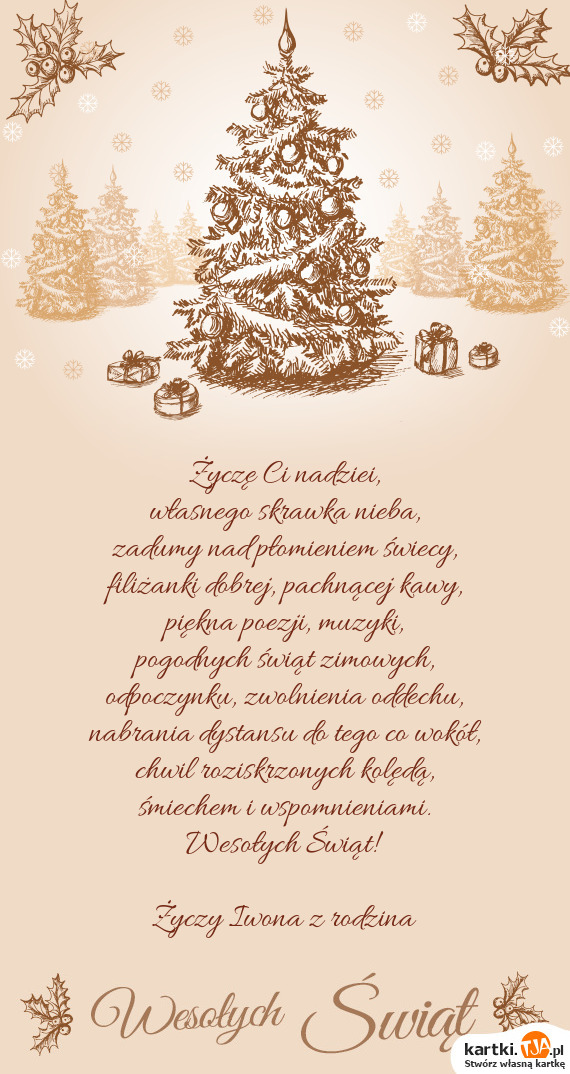 Życzę Ci nadziei,
własnego skrawka nieba,
zadumy nad płomieniem świecy,
filiżanki dobrej, pachnącej kawy,
piękna poezji, muzyki,
pogodnych świąt zimowych,
odpoczynku, zwolnienia oddechu,
nabrania dystansu do tego co wokół,
chwil roziskrzonych kolędą,
śmiechem i wspomnieniami.
Wesołych Świąt!
Życzy Iwona z rodzina
Wesołych Świąt
kartki.TJA.pl
Stwórz własną kartkę